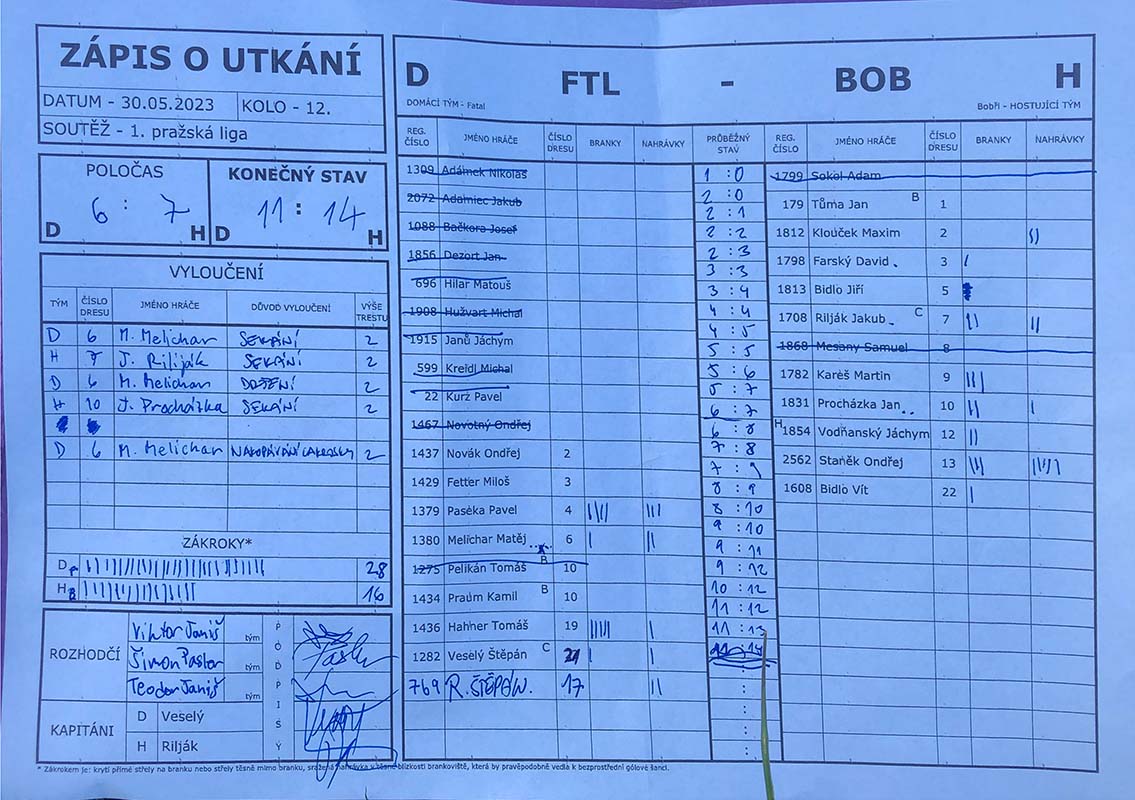 ZÁPIS O UTKÁNÍ
DATUM - 30.05.2023 KOLO - 12.
SOUTĚŽ - 1. pražská liga
POLOČAS
6 : 7
D H
KONEČNÝ STAV
11 : 14
D H
VYLOUČENÍ
TÝM ČÍSLO DRESU JMÉNO HRÁČE DŮVOD VYLOUČENÍ VÝŠE TRESTU
D 6 M. Melichar SEKÁNÍ 2
H 7 J. Riliják SEKÁNÍ 2
D 6 M. Melichar DRŽENÍ 2
H 10 J. Procházka SEKÁNÍ 2
D 6 M. Melichar 2
ZÁKROKY*
D P 28
H B 16
ROZHODČÍ
Viktor Janiš tým
Šimon Pastor tým
Teodor Janiš tým
PODPISY
KAPITÁNI
D Veselý
H Rilják
D FTL - BOB H
DOMÁCÍ TÝM - Fatal Bobři - HOSTUJÍCÍ TÝM
REG. ČÍSLO JMÉNO HRÁČE ČÍSLO DRESU BRANKY NAHRÁVKY PRŮBĚŽNÝ STAV REG. ČÍSLO JMÉNO HRÁČE ČÍSLO DRESU BRANKY NAHRÁVKY
1309 Adámek Nikolas
2072 Adamiec Jakub
1088 Bačkora Josef
1856 Dezort Jan
696 Hilar Matouš
1908 Hužvart Michal
1915 Janů Jáchym
599 Kreidl Michal
22 Kurz Pavel
1467 Novotný Ondřej
1437 Novák Ondřej 2
1429 Fetter Miloš 3
1379 Paseka Pavel 4 |||| |||
1380 Melichar Matěj 6 | ||
1275 Pelikán Tomáš B 10
1434 Praum Kamil B 10
1436 Hahner Tomáš 19 ||||| |
1282 Veselý Štěpán C 21 | |
769 R. ŠTĚPÁN. 17 ||
1 : 0
2 : 0
2 : 1
2 : 2
2 : 3
3 : 3
3 : 4
4 : 4
4 : 5
5 : 5
5 : 6
5 : 7
6 : 7
6 : 8
7 : 8
7 : 9
8 : 9
8 : 10
9 : 10
9 : 11
9 : 12
10 : 12
11 : 12
11 : 13
11 : 14
1799 Sokol Adam
179 Tůma Jan B 1
1812 Klouček Maxim 2 ||
1798 Farský David 3 |
1813 Bidlo Jiří 5
1708 Rilják Jakub C 7 || ||
1868 Mesany Samuel 8
1782 Kareš Martin 9 |||
1831 Procházka Jan 10 || |
H 1854 Vodňanský Jáchym 12 ||
2562 Staněk Ondřej 13 ||| ||||
1608 Bidlo Vít 22 |
* Zákrokem je: krytí přímé střely na branku nebo střely těsně mimo branku, sražená nahrávka v těsné blízkosti brankoviště, která by pravěpodobně vedla k bezprostřední gólové šanci.